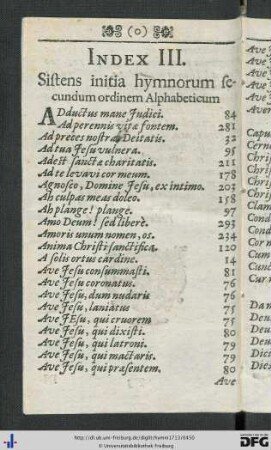 (o)
INDEX III.
Sistens initia hymnorum se-
cundum ordinem Alphabeticum
ADductus mane Judici. 84
Ad perennis vitæ fontem. 281
Ad preces nostras Deitatis. 32
Ad tua Jesu vulnera. 95
Adest sancta charitatis. 211
Ad te levavi cor meum. 178
Agnosco, Domine Jesu, ex intimo. 203
Ah culpas meas doleo. 158
Ah plange! plange. 97
Amo Deum! sed liberè. 293
Amoris unum nomen, os. 234
Anima Christi sanctifica. 120
A solis ortus cardine. 14
Ave Jesu consummasti. 81
Ave Jesu coronatus. 76
Ave Jesu, dum nudaris 76
Ave Jesu, laniatus 75
Ave JEsu, qui cruorem 75
Ave Jesu, qui dixisti. 80
Ave Jesu, qui latroni. 79
Ave Jesu, qui mactaris. 79
Ave Jesu, qui præsentem. 80
Ave
http://dl.ub.uni-freiburg.de/diglit/hymni1713/0430
© Universitätsbibliothek Freiburg
gefördert durch die
DFG